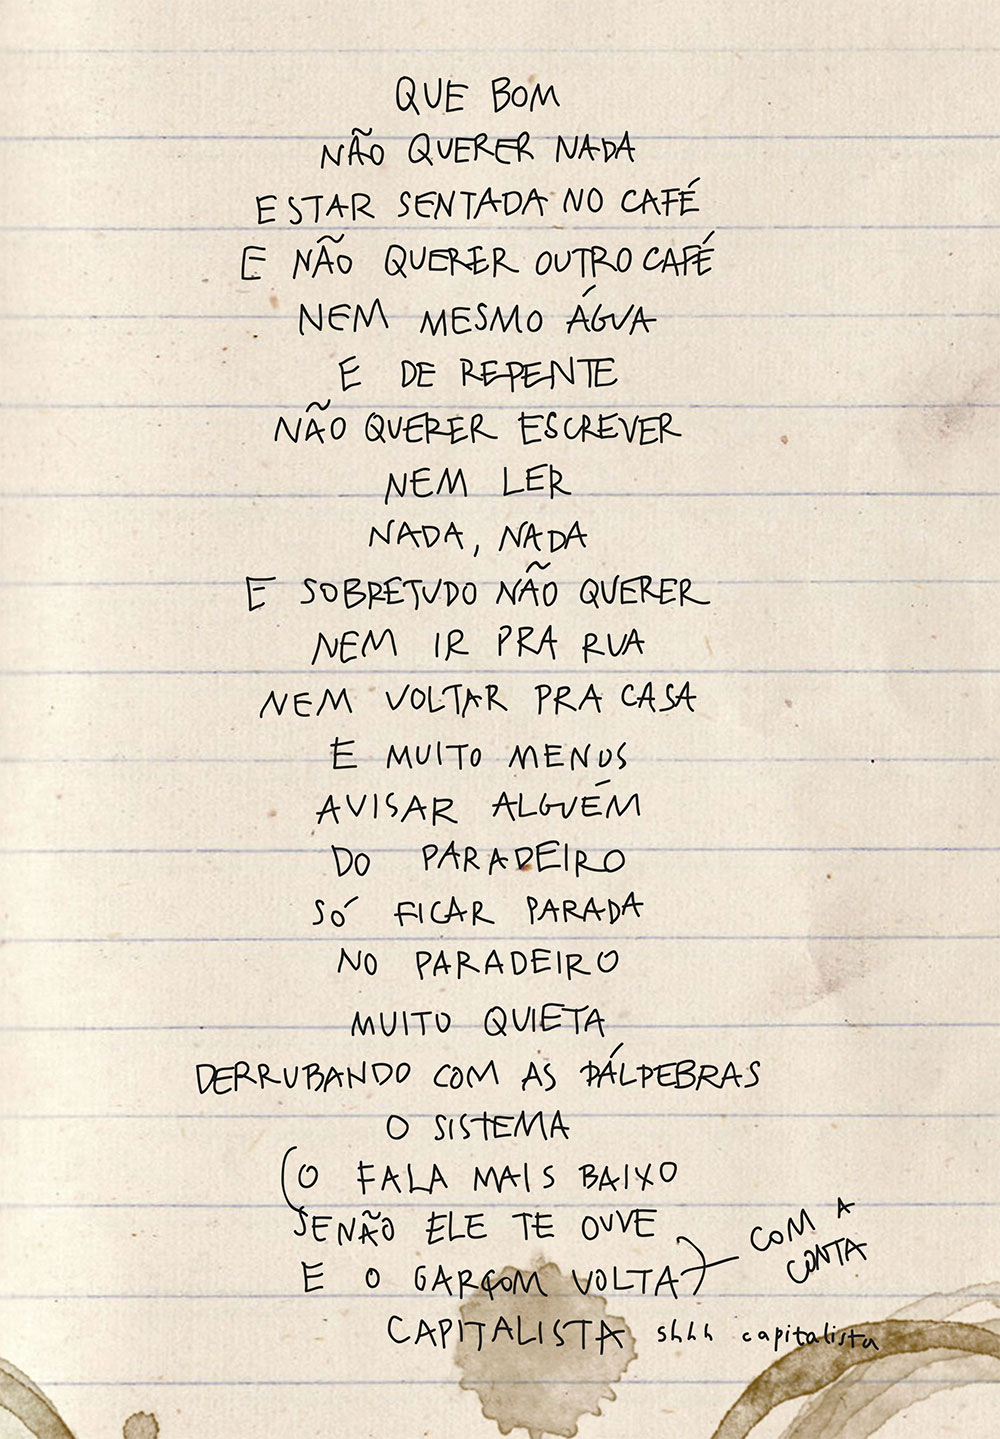 QUE BOM
NÃO QUERER NADA
ESTAR SENTADA NO CAFÉ
E NÃO QUERER OUTRO CAFÉ
NEM MESMO ÁGUA
E DE REPENTE
NÃO QUERER ESCREVER
NEM LER
NADA, NADA
E SOBRETUDO NÃO QUERER
NEM IR PRA RUA
NEM VOLTAR PRA CASA
E MUITO MENOS
AVISAR ALGUÉM
DO PARADEIRO
SÓ FICAR PARADA
NO PARADEIRO
MUITO QUIETA
DERRUBANDO COM AS PÁLPEBRAS
O SISTEMA
(O FALA MAIS BAIXO
SENÃO ELE TE OUVE
E O GARÇOM VOLTA)
COM A
CONTA
CAPITALISTA shhh capitalista